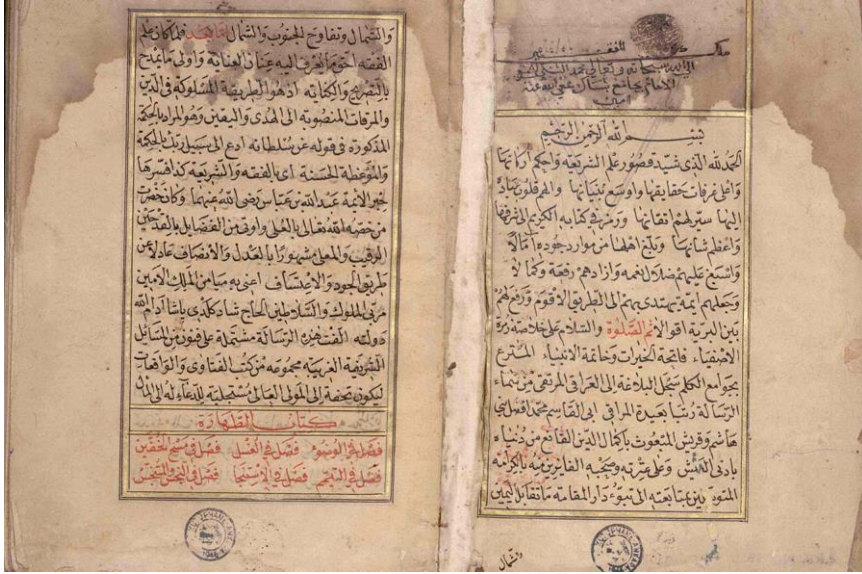 بسم الله الرحمن الرحيم
الحمد لله الذي شيد قصور علم الشريعة واحكم اركانها
واعلى غرفات حقايقها واوسع بنيانها والهم قلوب عباده
اليها سترلهم اتقانها ورمز في كتابه الكريم الى شرفها
واعظم شانها وبلغ اهلها من موارد جوده آمالا
واسبغ عليهم ضلال نعمه وازادهم رفعة وكمالا
وجعلهم ايمة يهتدى بهم الى الطريق الاقوم ورفع لهم
بين البرية اقوالا ثم الصلوة والسلام على خلاصة زمرة
الاصفياء فاتحة الخيرات وخاتمة الانبياء المسترع
بجوامع الكلم سجل البلاغة الى العراقي المرتقى من سماء
الرسالة المراقي ابي القاسم محمد افضل بني
هاشم وقريش المنعوت بكمال الدين القانع من دنياه
بادنى العيش وعلى عترته وصحبه الفايزين منه بالكرامة
بمتابعته الى تبوء دار المقامة ما تقابل اليمين
وشمال
والشمال وتفاوح الجنوب والشمال فلما كان علم
الفقه احق ما يصرف اليه عنان العناية واولى ما يمدح
بالتصريح والكناية اذ هو الطريقة المسلوكة في الدين
والمرقات المنصوبة الى الهدى واليقين وهو المراد بالحكمة
المذكورة في قوله عز سلطانه ادع الى سبيل ربك بالحكمة
والموعظة الحسنة اى بالفقه والشريعة كذا فسرها
حبر الايمة عبد الله بن عباس رضي الله عنهما وكان حضرت
من خصه الله تعالى بالعلى واوتى من الفضايل بالقدحين
الرقيب والمعلى مشهورا بالعدل والانصاف عادلا عن
طريق الجود والاعتساف اعنى به ميامن الملك الامين
مربى الملوك والسلاطين الحاج شاد كلدى پاشا ادام الله
دولته الفت هذه الرسالة مشتملة على فنون من المسائل
الشريفة الغريبة مجموعة من كتب الفتاوى والواقعات
ليكون تحفة الى المولى العالى مستجلبة للدعاء له الى
كتاب الطهارة
فصل في الوضوء فصل في الغسل فصل في مسح الخفين
فصل في التيمم فصل في الاستنجا فصل في النجس